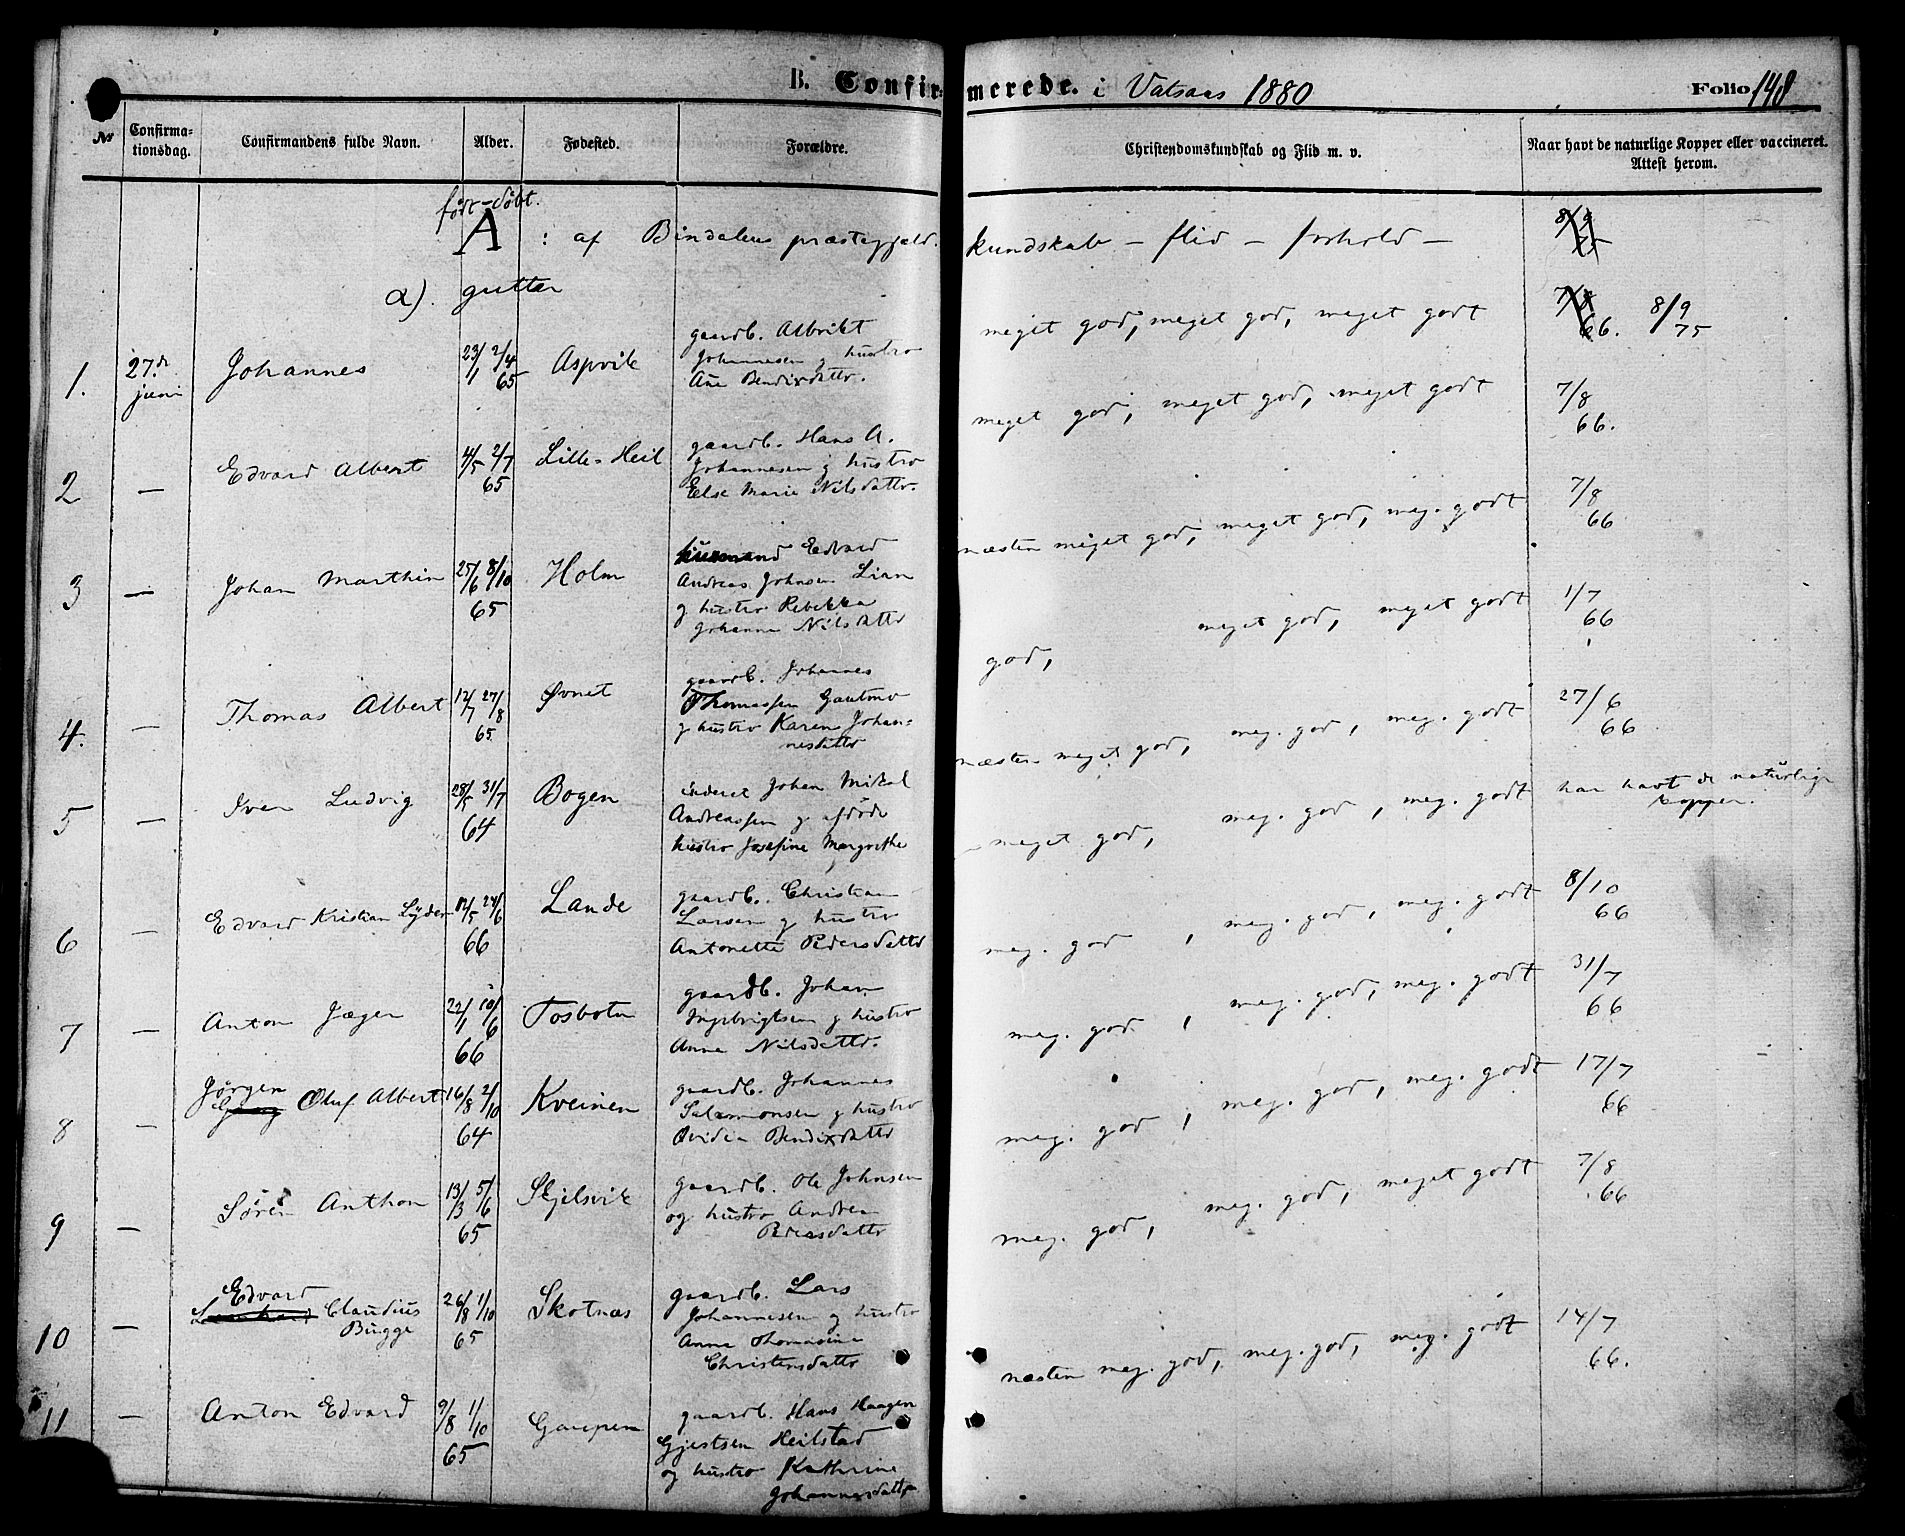 B. Confirmerede. i Vatsaas 1880
Folio 148
No
Confirmationsdag.
Confirmandens fulde Navn.
Alder.
Fødested.
Forældre.
Christendomskundskab og Flid m. v.
Naar havt de naturlige Kopper eller vaccineret. Attest herom.
født - döbt.
A : af Bindalens præstegjeld. kundskab - flid - forhold -
a). gutter
1. 27de juni Johannes 23/1 2/4 65 Aspvik
gaardb. Albrikt
Johannesen g hustro
Ane Bendixdattr.
meget god, meget god, meget godt
8/9 75
2 — Edvard Albert 4/5 2/7 65 Lille-Heil
gaardb. Hans A.
Johannesen g hustro
Else Marie Nilsdattr.
meget god, meget god, meget godt
7/8 66.
3 — Johan Marthin 25/6 8/10 65 Holm
husmand Edvard
Andreas Johnsen Lian
g hustro Rebekka
Johanna Nilsdattr
næsten meget god, meget god, meg. godt
7/8 66
4. — Thomas Albert 12/7 27/8 65 Øvnet
gaardb. Johannes
Thomassen Gautmo
g hustro Karen Johan-
nesdattr
god, meget god, meget godt
1/7 66
5 — Iver Ludvig 28/5 31/7 64 Bogen
inderst Johan Mikal
Andreassen g afdöde
hustro Josefine Margrethe
næsten meget god, meg. god, meg. godt
27/6 66
6 — Edvard Kristian Lyder 12/5 24/6 66 Lande
gaardb. Christian
Larsen g hustro
Antonette Pedersdattr
meget god, meg. god, meg. godt
har havt de naturlige
kopper.
7 — Anton Jæger 22/1 10/6 66 Tosbotn
gaardb. Johan
Ingebrigtsen g hustro
Anne Nilsdattr.
meg. god, meg. god, meg. godt
8/10 66
8 — Jørgen Oluf Albert 16/8 2/10 64 Kveinen
gaardb. Johannes
Salamonsen g hustro
Ovidia Bendixdattr
meg. god, meg. god, meg. godt
31/7 66
9 — Søren Anthon 13/3 5/6 65 Skjelsvik
gaardb. Ole Johnsen
og hustro Andrea
Pedersdattr
meg. god, meg. god, meg. godt
17/7 66
10 — Edvard Claudius Bugge 26/8 1/10 65 Skotnæs
gaardb. Lars
Johannesen g hustro
Anne Thomasine
Christensdattr
meg. god, meg. god, meget godt
7/8 66
11 — Anton Edvard 9/8 1/10 65 Gaupen
gaardb. Hans Haagen
Gjestsen Heilstad
og hustro Kathrine
Johannesdattr
næsten meg. god, meg. god, meg. godt
14/7 66.